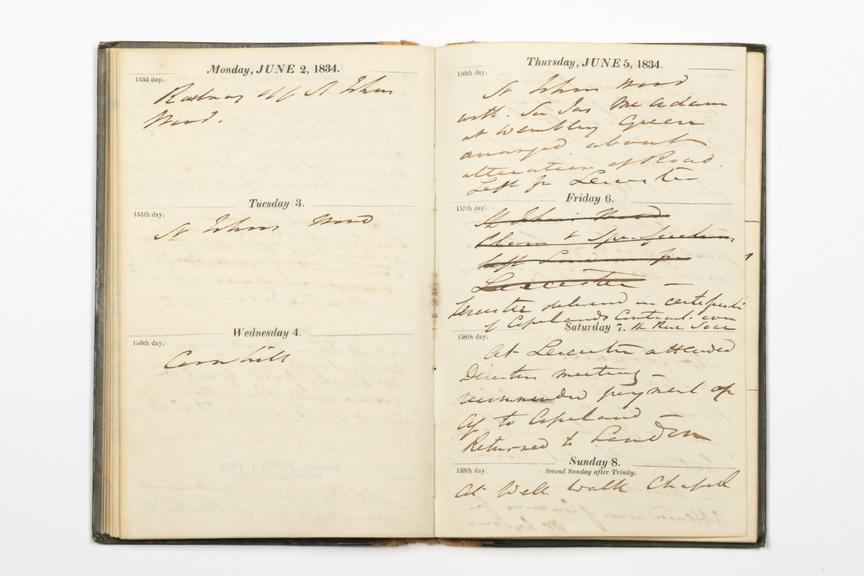 Monday, JUNE 2, 1834.
153d day.
Railway Off St Johns
Wood.
Tuesday 3.
154th day.
St Johns Wood
Wednesday 4.
155th day.
Cornhill
Thursday, JUNE 5, 1834.
156th day.
St Johns Wood
with Sir Jas McAdam
at Wembley Green
arranged about
alteration of Road.
Left for Leicester
Friday 6.
157th day.
St Johns Wood
& Specification
left London for
Leicester
Leicester in certificate
of Copelands Contract
Saturday 7.
158th day.
At Leicester attended
Directors meeting –
recommended payment of
to Copeland –
Returned to London
Sunday 8.
159th day.
Second Sunday after Trinity.
At Well Walk Chapel